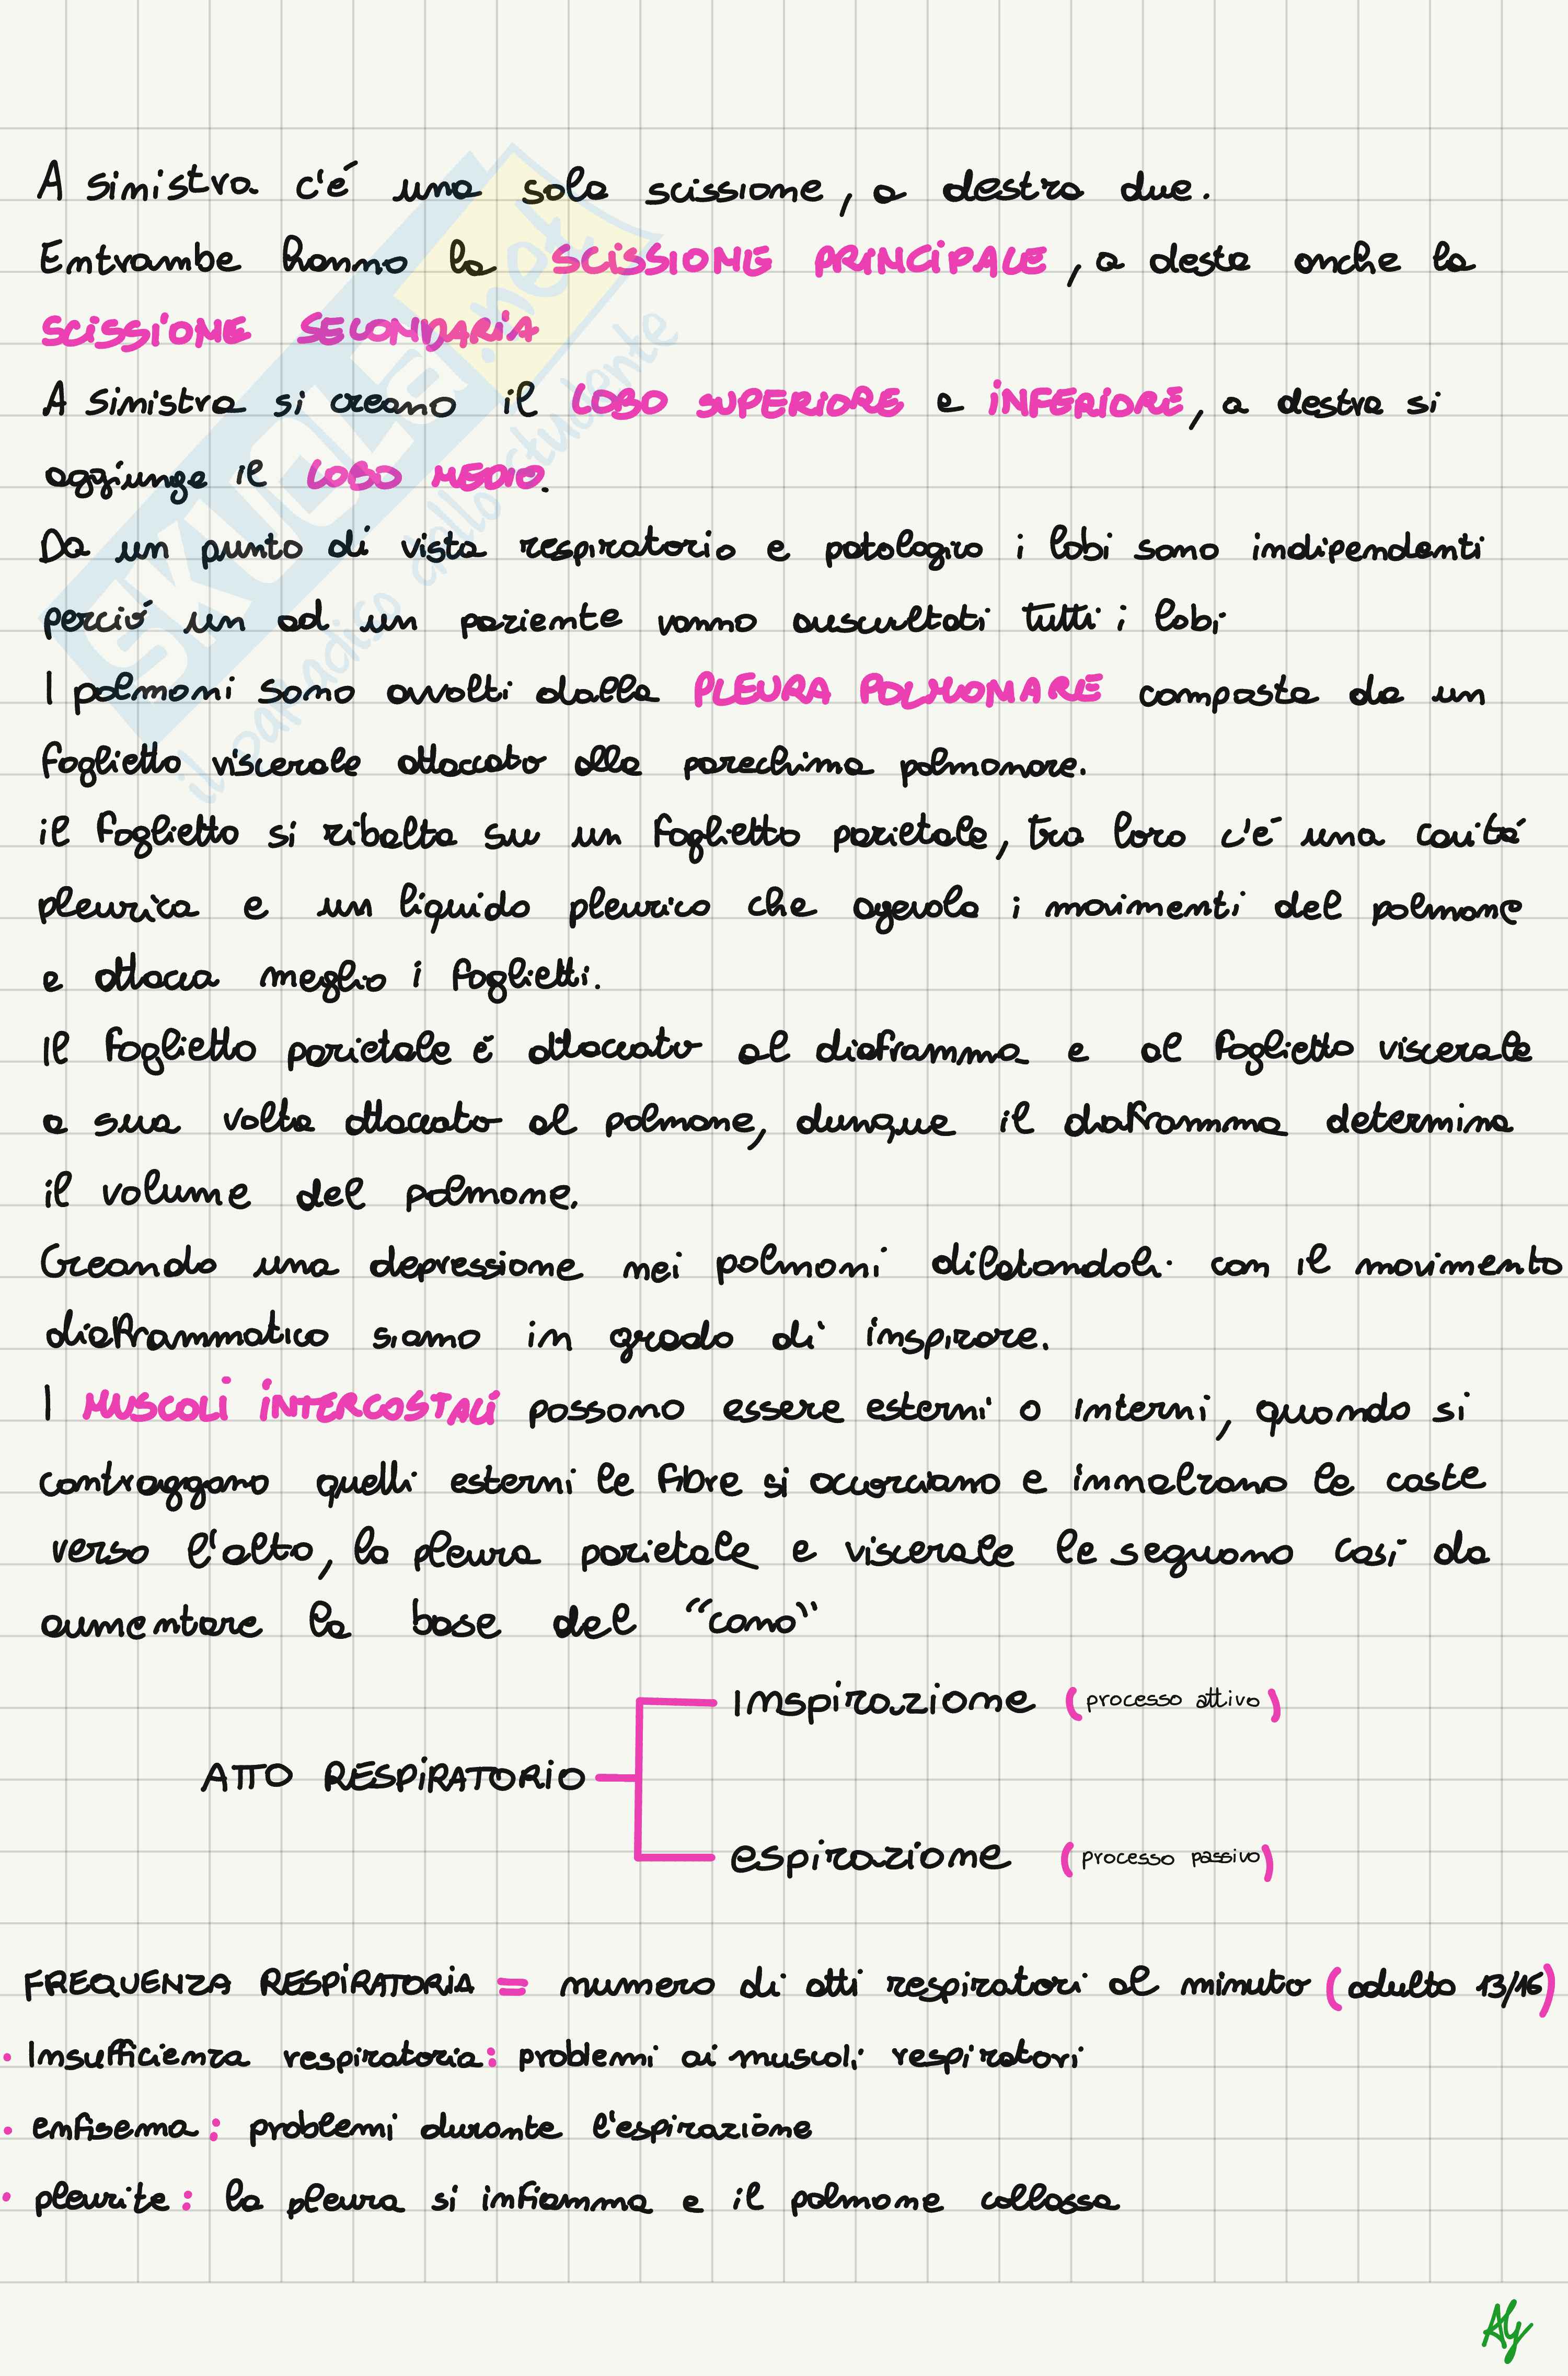 A sinistra c'é una sola scissione, a destra due.
Entrambe hanno la SCISSIONE PRINCIPALE, a desta anche la
SCISSIONE SECONDARIA
A sinistra si creano il LOBO SUPERIORE e INFERIORE, a destra si
aggiunge il LOBO MEDIO.
Da un punto di vista respiratorio e patologiro i lobi sono indipendenti
perció un ad un paziente vanno auscultati tutti i lobi
I polmoni sono avvolti dalla PLEURA POLMONARE composta da un
foglietto viscerale attaccato alla parechima polmonare.
il foglietto si ribalta su un foglietto parietale, tra loro c'é una cavitá
pleurica e un liquido pleurico che agevola i movimenti del polmone
e attacca meglio i foglietti.
Il foglietto parietale é attaccato al diaframma e al foglietto viscerale
a sua volta attaccato al polmone, dunque il diaframma determina
il volume del polmone.
Creando una depressione nei polmoni dilatandoli con il movimento
diaframmatico siamo in grado di inspirare.
I MUSCOLI INTERCOSTALI possono essere esterni o interni, quando si
contraggano quelli esterni le fibre si accorciano e innalzano le coste
verso l'alto, la pleura parietale e viscerale le seguono cosí da
aumentare la base del "cono"
Inspirazione (processo attivo)
ATTO RESPIRATORIO
espirazione (processo passivo)
FREQUENZA RESPIRATORIA = numero di atti respiratori al minuto (adulto 13/16)
· Insufficienza respiratoria: problemi ai muscoli respiratori
· enfisema: problemi durante l'espirazione
· pleurite: la pleura si infiamma e il polmone collassa
Aly
SKUOLA.net
il paradiso dello studente